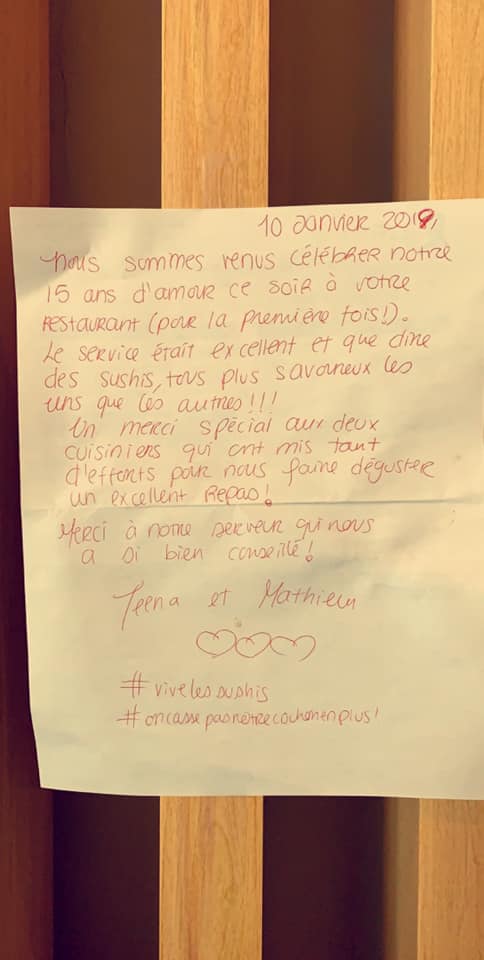 10 Janvier 2019,
Nous sommes venus célébrer notre
15 ans d'amour ce soir à votre
restaurant (pour la première fois!).
Le service était excellent et que dire
des sushis, tous plus savoureux les
uns que les autres!!!
Un merci spécial aux deux
cuisiniers qui ont mis tant
d'efforts pour nous faire déguster
un excellent Repas!
Merci à notre serveur qui nous
a si bien conseillé!
Teena et Mathieu
#vivelessushis
#oncassepasnotrecochonenplus!